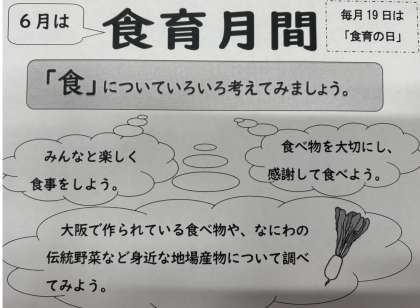 ６月は
食育月間
毎月19日は
「食育の日」
「食」についていろいろ考えてみましょう。
みんなと楽しく
食事をしよう。
食べ物を大切にし、
感謝して食べよう。
大阪で作られている食べ物や、なにわの
伝統野菜など身近な地場産物について調べ
てみよう。